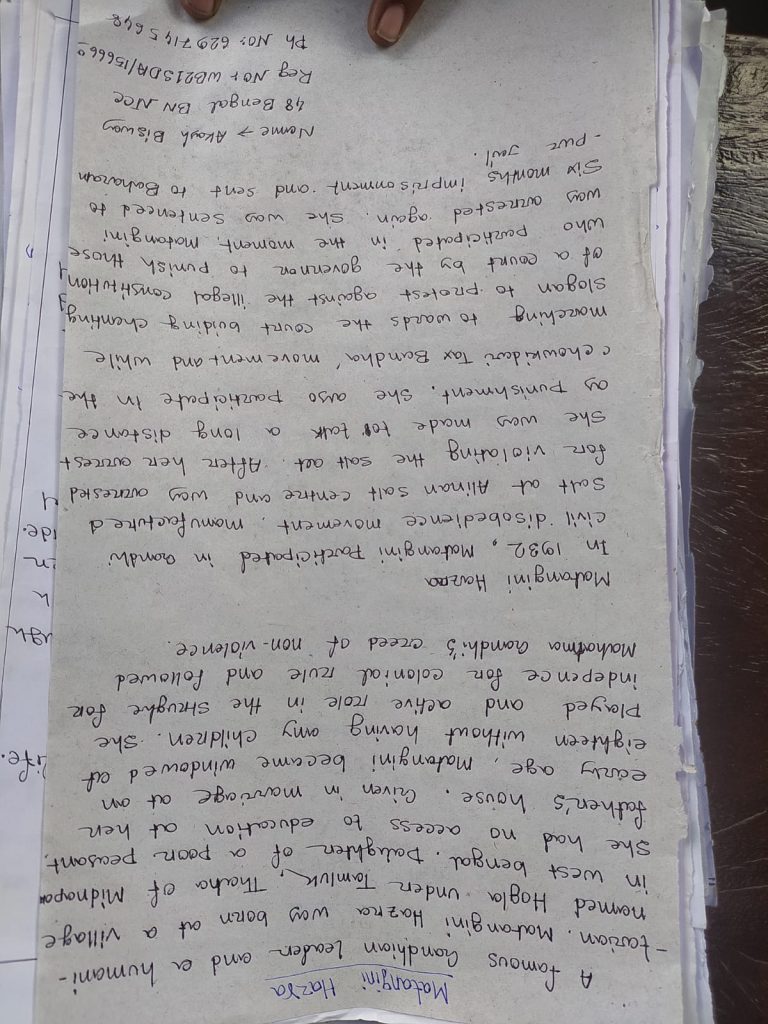 Matangini Hazra
A famous Gandhian Leader and a humani-
-tarian. Matangini Hazra was born at a village
named Hogla under Tamluk, Thana of Midnapor
in west bengal. Daughter of a poor peasant.
She had no access to education at her
father's house. Given in marriage at an
early age, Matangini became windowed at
eighteen without having any children. She
Played and active role in the Strughe for
indepence for colonial rule and followed
Mahatma Gandhi's creed of non-violence.
Matangini Hazra
In 1932, Matangini Participated in Gandhi
civil disobedience movement, manufactured
Salt at Alinan salt centre and was arrested
for violating the salt act. After her arrest
She was made to talk a long distance
as punishment. She also participate in the
'chowkideri Tax Bandha' movement and while
marching towards the court buiding chanting
slogan to protest against the illegal constitution
of a court by the governor to punish those
who participated in the moment, Matangini
was arrested again. She was sentenced to
Six months imprisonment and sent to Baharam
- pur Jail.
Name → Akash Biswas
48 Bengal BN NCC
Reg No: WB21SDA/156660
Ph No: 6297145648
life.
ugh
u
in
ide.
d